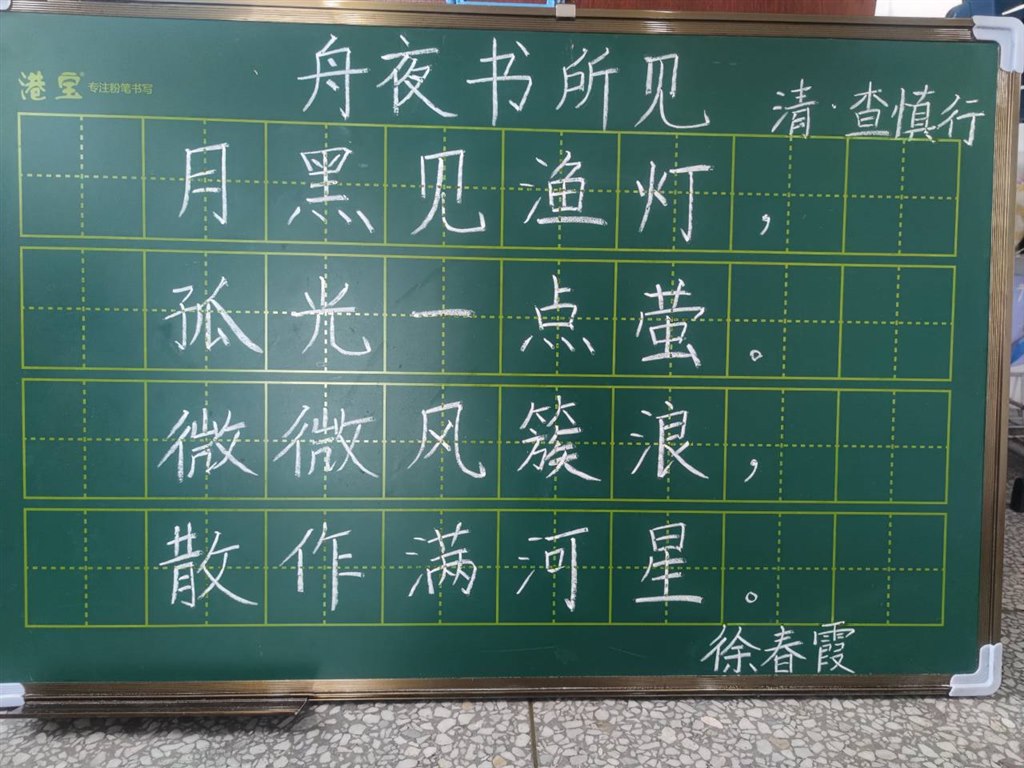 港宝 专注粉笔书写
舟夜书所见
清·查慎行
月黑见渔灯，
孤光一点萤。
微微风簇浪，
散作满河星。
徐春霞